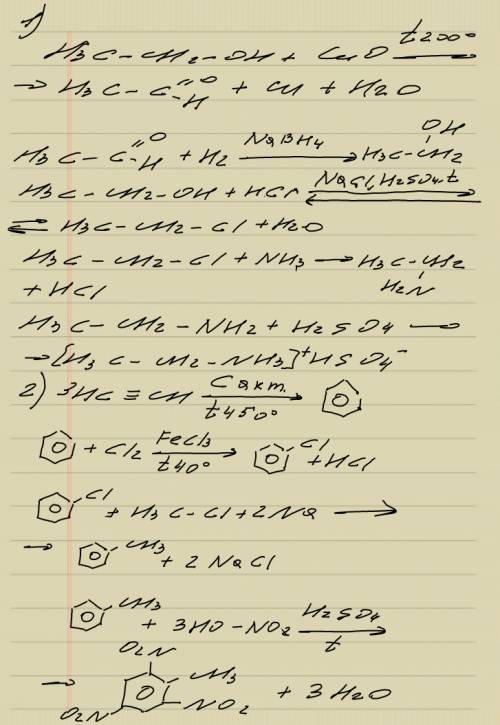 1)
H3C - CH2 - OH + CuO t200°→
→ H3C - C=O-H + Cu + H2O
H3C - C=O-H + H2 NaBH4→ H3C - CH2 OH
H3C - CH2 - OH + HCl NaCl, H2SO4, t⇄
⇄ H3C - CH2 - Cl + H2O
H3C - CH2 - Cl + NH3 → H3C - CH2 H2N
+ HCl
H3C - CH2 - NH2 + H2SO4 →
→ [H3C - CH2 - NH3]+ HSO4-
2) 3HC ≡ CH C акт. t450°→
+ Cl2 FeCl3 t40°→ Cl + HCl
Cl + H3C - Cl + 2Na →
→ CH3 + 2NaCl
CH3 + 3HO - NO2 H2SO4 t→
→ O2N CH3 O2N NO2 + 3H2O